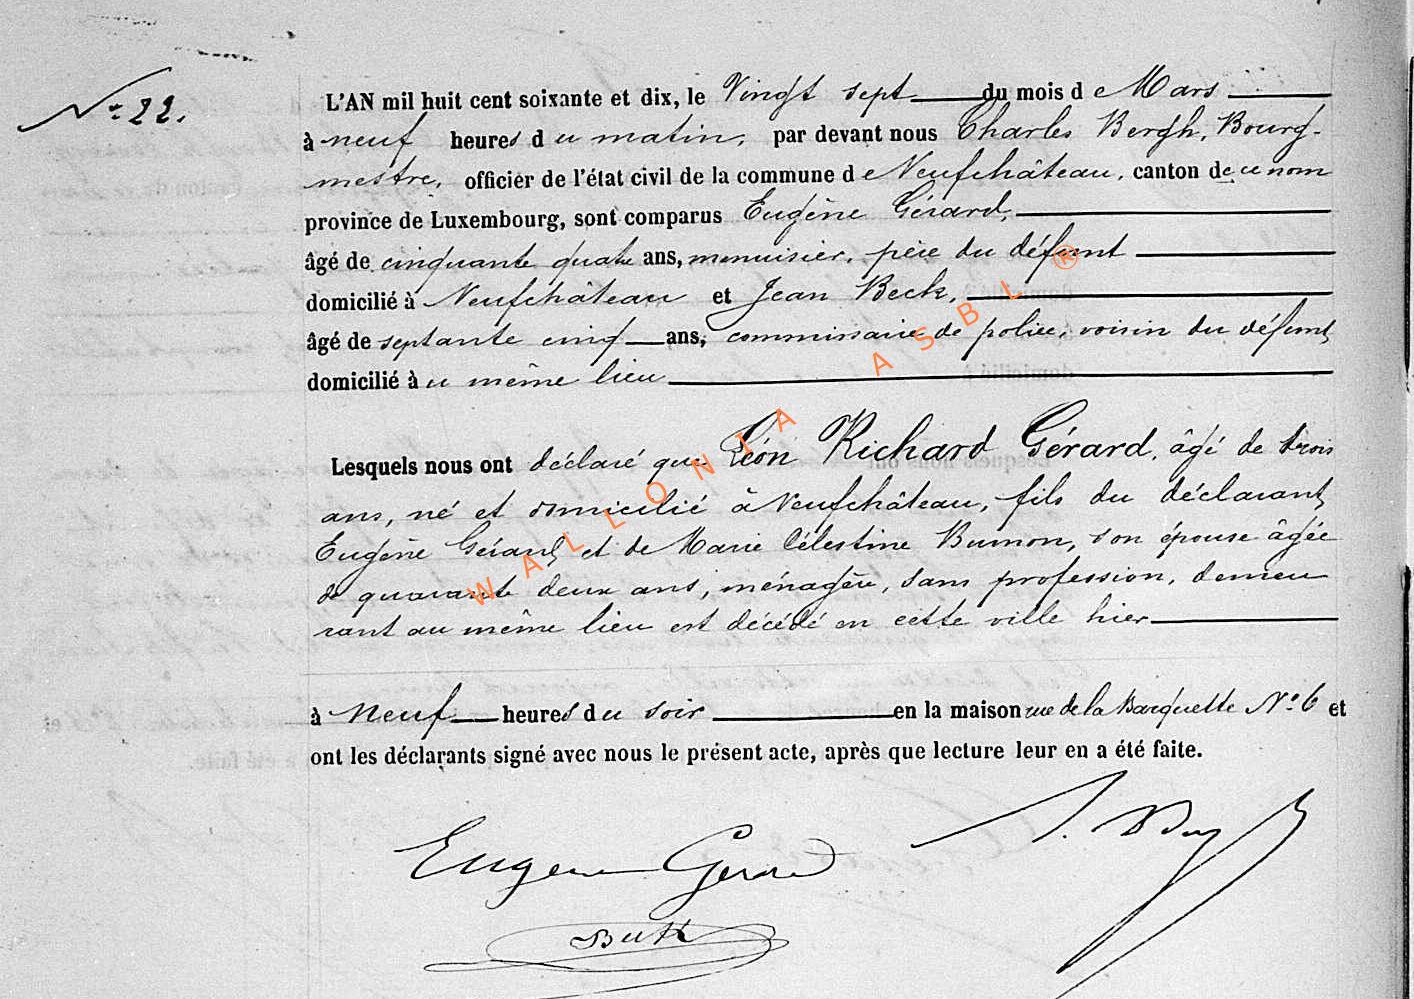 N° 22.
L'AN mil huit cent soixante et dix, le Vingt sept du mois de Mars
à neuf heures du matin, par devant nous Charles Bergh, Bourg-
mestre, officier de l'état civil de la commune de Neufchâteau, canton de ce nom
province de Luxembourg, sont comparus Eugène Gérard,
âgé de cinquante quatre ans, menuisier, père du défunt
domicilié à Neufchâteau et Jean Beck,
âgé de septante cinq ans, commissaire de police, voisin du défunt
domicilié au même lieu
Lesquels nous ont déclaré que Léon Richard Gérard, âgé de trois
ans, né et domicilié à Neufchâteau, fils du déclarant
Eugène Gérard, et de Marie Célestine Bumon, son épouse âgée
de quarante deux ans, ménagère, sans profession, demeu
rant au même lieu est décédé en cette ville hier
à Neuf heures du soir en la maison rue de la Barquette N° 6 et
ont les déclarants signé avec nous le présent acte, après que lecture leur en a été faite.
Eugene Gerard
Beck
WALLONIA ASBL ®